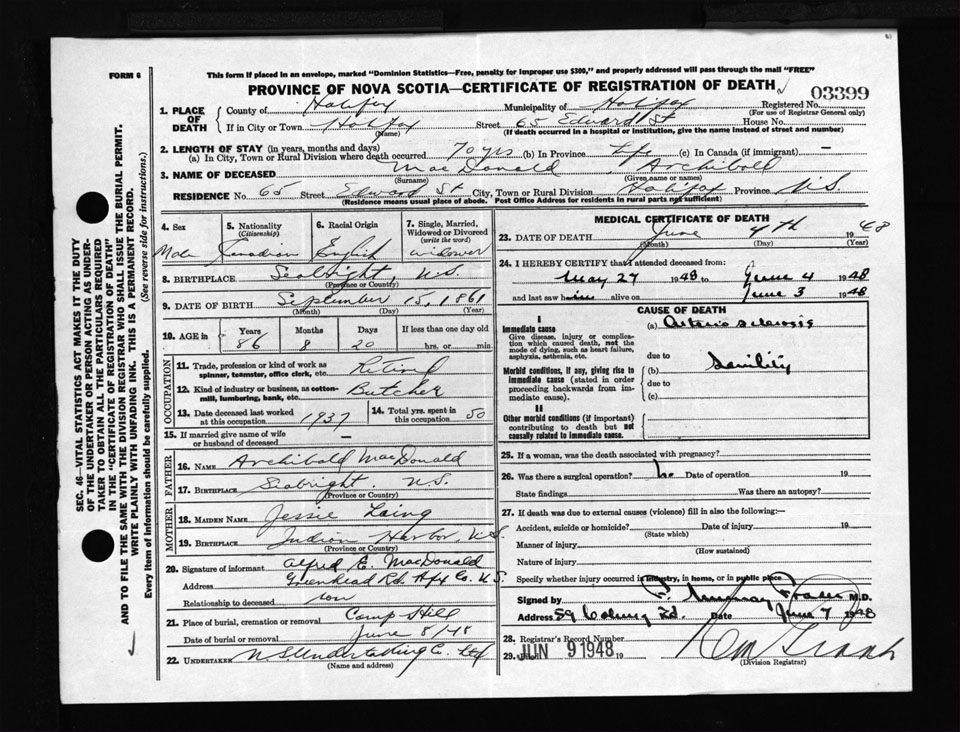 FORM 6
This form if placed in an envelope, marked "Dominion Statistics—Free, penalty for improper use $300," and properly addressed will pass through the mail "FREE"
PROVINCE OF NOVA SCOTIA—CERTIFICATE OF REGISTRATION OF DEATH
03399
1. PLACE OF DEATH
County of Halifax Municipality of Halifax Registered No.
(For use of Registrar General only)
If in City or Town Halifax Street 65 Edward St House No.
(Name) (If death occurred in a hospital or institution, give the name instead of street and number)
2. LENGTH OF STAY (in years, months and days)
(a) In City, Town or Rural Division where death occurred 70 yrs (b) In Province Life (c) In Canada (if immigrant) —
3. NAME OF DECEASED MacDonald Archibald
(Surname) (Given name or names)
RESIDENCE No. 65 Street Edward St City, Town or Rural Division Halifax Province N.S.
(Residence means usual place of abode. Post Office Address for residents in rural parts not sufficient)
4. Sex Male
5. Nationality (Citizenship) Canadian
6. Racial Origin English
7. Single, Married, Widowed or Divorced (write the word) widower
8. BIRTHPLACE Seabright, N.S.
(Province or Country)
9. DATE OF BIRTH September 15, 1861
(Month) (Day) (Year)
10. AGE in Years Months Days If less than one day old
86 8 20 hrs. or min.
OCCUPATION
11. Trade, profession or kind of work as spinner, teamster, office clerk, etc. Retired
12. Kind of industry or business, as cotton-mill, lumbering, bank, etc. Butcher
13. Date deceased last worked at this occupation 1937
14. Total yrs. spent in this occupation 50
15. If married give name of wife or husband of deceased —
FATHER
16. NAME Archibald MacDonald
17. BIRTHPLACE Seabright. N.S.
(Province or Country)
MOTHER
18. MAIDEN NAME Jessie Laing
19. BIRTHPLACE Indian Harbor, N.S.
(Province or Country)
20. Signature of informant Alfred E. MacDonald
Address Greenhead Rd. Hfx Co. N.S.
Relationship to deceased son
21. Place of burial, cremation or removal Camp Hill
Date of burial or removal June 8/48
22. UNDERTAKER N.S. Undertaking Co. Ltd
(Name and address)
MEDICAL CERTIFICATE OF DEATH
23. DATE OF DEATH June 4th 1948
(Month) (Day) (Year)
24. I HEREBY CERTIFY that I attended deceased from:
May 27 1948 to June 4 1948
and last saw him alive on June 3 1948
CAUSE OF DEATH
I
Immediate cause
Give disease, injury or complication which caused death, not the mode of dying, such as heart failure, asphyxia, asthenia, etc.
(a) Arterio sclerosis
due to
Morbid conditions, if any, giving rise to immediate cause (stated in order proceeding backwards from immediate cause).
(b) Senility
due to
(c)
II
Other morbid conditions (if important) contributing to death but not causally related to immediate cause.
25. If a woman, was the death associated with pregnancy?
26. Was there a surgical operation? no Date of operation 19
State findings Was there an autopsy?
27. If death was due to external causes (violence) fill in also the following:—
Accident, suicide or homicide? Date of injury 19
(State which)
Manner of injury
(How sustained)
Nature of injury
Specify whether injury occurred in industry, in home, or in public place
Signed by Murray Fraser M.D.
Address 59 Coburg Rd. Date June 7 1948
28. Registrar's Record Number
29. JUN 9 1948 19
(Division Registrar)
SEC. 46—VITAL STATISTICS ACT MAKES IT THE DUTY OF THE UNDERTAKER OR PERSON ACTING AS UNDERTAKER TO OBTAIN ALL THE PARTICULARS REQUIRED IN THE "CERTIFICATE OF REGISTRATION OF DEATH" AND TO FILE THE SAME WITH THE DIVISION REGISTRAR WHO SHALL ISSUE THE BURIAL PERMIT.
WRITE PLAINLY WITH UNFADING INK. THIS IS A PERMANENT RECORD.
Every item of information should be carefully supplied. (See reverse side for instructions.)